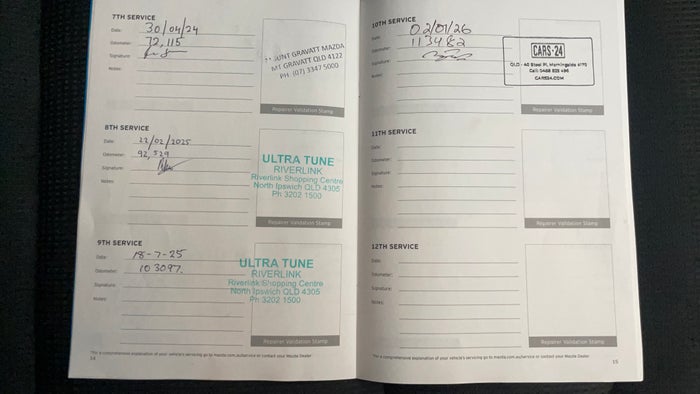 7TH SERVICE
Date: 30/04/24
Odometer: 72,115
Signature:
Notes:
MOUNT GRAVATT MAZDA
MT GRAVATT QLD 4122
PH: (07) 3347 5000
Repairer Validation Stamp
8TH SERVICE
Date: 22/02/2025
Odometer: 92,529
Signature:
Notes:
ULTRA TUNE
RIVERLINK
Riverlink Shopping Centre
North Ipswich QLD 4305
Ph 3202 1500
Repairer Validation Stamp
9TH SERVICE
Date: 18-7-25
Odometer: 103097.
Signature:
Notes:
ULTRA TUNE
RIVERLINK
Riverlink Shopping Centre
North Ipswich QLD 4305
Ph 3202 1500
Repairer Validation Stamp
This is comprehensive explanation of your vehicle's servicing go to mazda.com.au/service or contact your Mazda Dealer
14
10TH SERVICE
Date: 02/01/26
Odometer: 113482
Signature:
Notes:
CARS-24
QLD - 40 Steel Pl, Morningside 4170
CARS24.COM
Repairer Validation Stamp
11TH SERVICE
Date:
Odometer:
Signature:
Notes:
Repairer Validation Stamp
12TH SERVICE
Date:
Odometer:
Signature:
Notes:
Repairer Validation Stamp
This is comprehensive explanation of your vehicle's servicing go to mazda.com.au/service or contact your Mazda Dealer
15